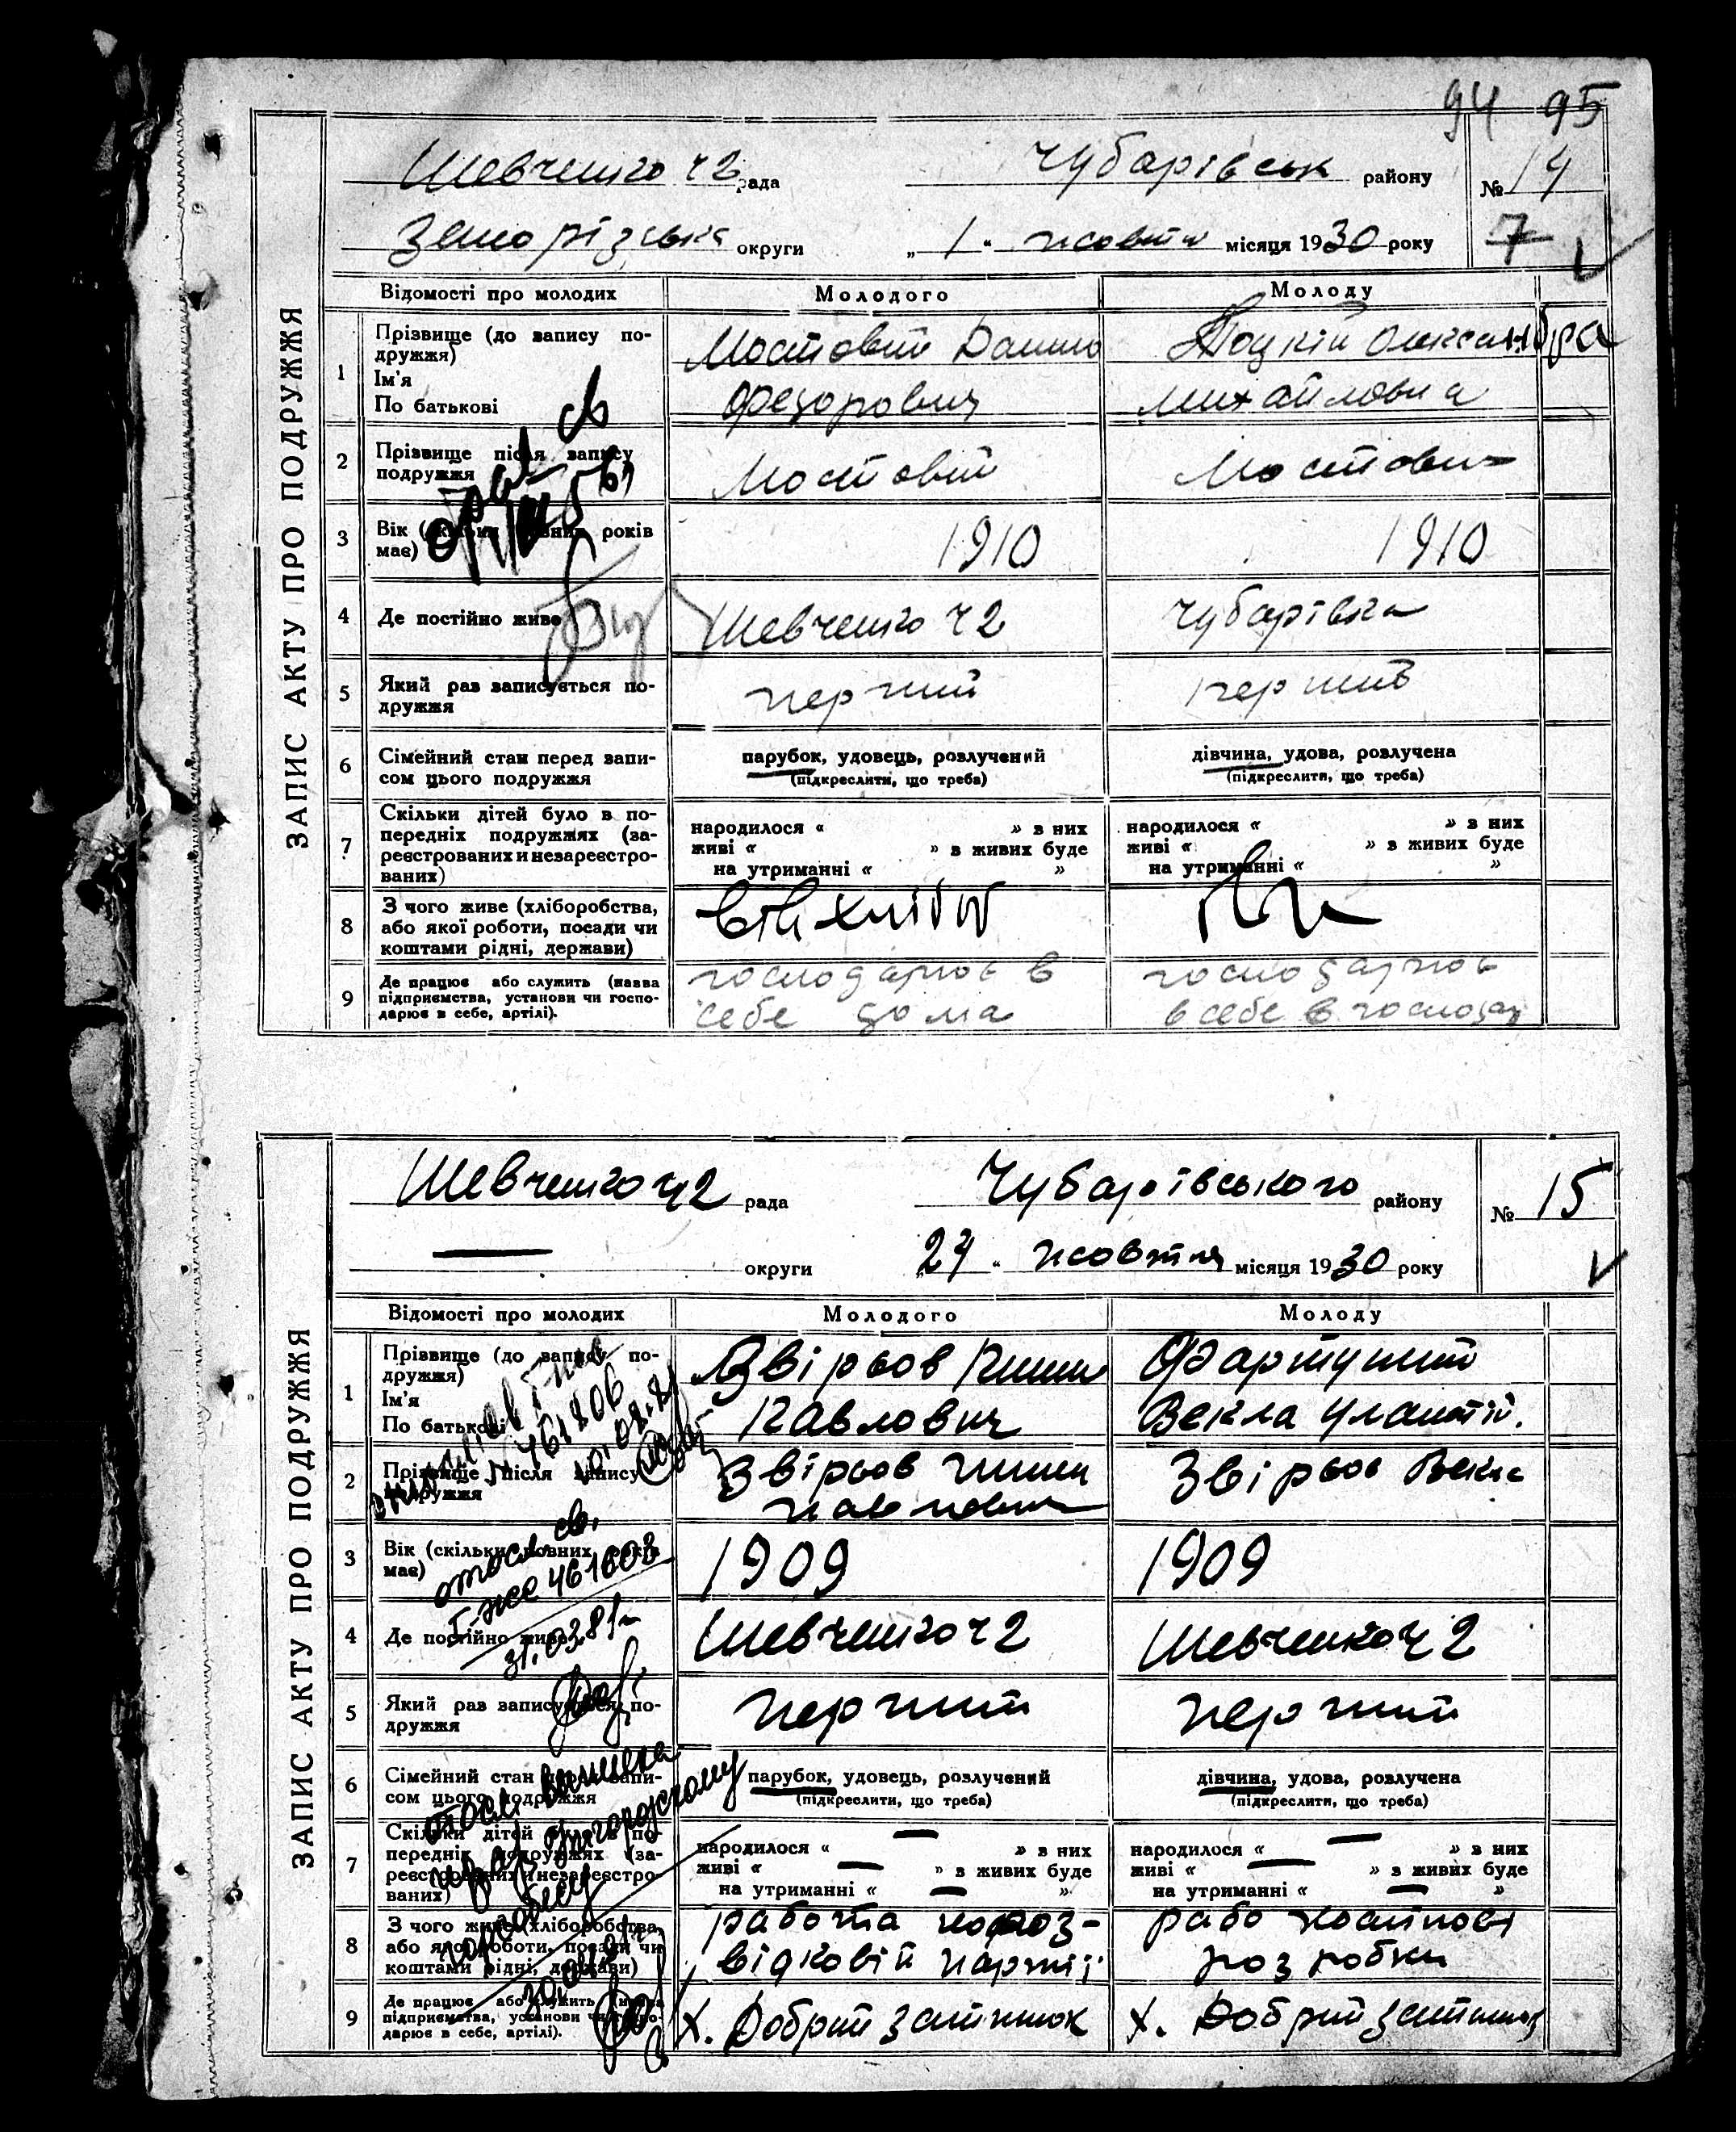 94 95
ЗАПИС АКТУ ПРО ПОДРУЖЖЯ
Шевченко ч 2 рада Чубарівськ району № 14
округи „1“ жовтня місяця 1930 року 7
Відомості про молодих Молодого Молоду
1 Прізвище (до запису по-
дружжя)
Ім'я
По батькові
Мостовий Данило
Федорович
Олександра
Михайловна
2 Прізвище після запису
подружжя
Мостовий
3 Вік (скільки повних років
має)
1910 1910
4 Де постійно живе
Шевченко ч 2 Чубарівка
5 Який раз записується по-
дружжя
перший перший
6 Сімейний стан перед запи-
сом цього подружжя
парубок, удовець, розлучений
(підкреслити, що треба)
дівчина, удова, розлучена
(підкреслити, що треба)
7 Скільки дітей було в по-
передніх подружжях (за-
реєстрованих и незареєстро-
ваних)
народилося « » в них
живі « » в живих буде
на утриманні « »
народилося « » в них
живі « » в живих буде
на утриманні « »
8 З чого живе (хліборобства,
або якої роботи, посади чи
коштами рідні, держави)
9 Де працює або служить (назва
підприємства, установи чи госпо-
дарює в себе, артілі).
господарює в
себе дома
господарює
в себе в господар
ЗАПИС АКТУ ПРО ПОДРУЖЖЯ
Шевченко ч 2 рада Чубарівського району № 15
— округи 24 “ жовтня місяця 1930 року
Відомості про молодих Молодого Молоду
1 Прізвище (до запису по-
дружжя)
Ім'я
По батькові
Звірьов
Павлович
Фартушний
Векла
2 Прізвище після запису
подружжя
Звірьов
Павлович
Звірьов Векла
3 Вік (скільки повних років
має)
1909 1909
4 Де постійно живе
Шевченко ч 2 Шевченко ч 2
5 Який раз записується по-
дружжя
перший перший
6 Сімейний стан перед запи-
сом цього подружжя
парубок, удовець, розлучений
(підкреслити, що треба)
дівчина, удова, розлучена
(підкреслити, що треба)
7 Скільки дітей було в по-
передніх подружжях (за-
реєстрованих и незареєстро-
ваних)
народилося « — » в них
живі « — » в живих буде
на утриманні « — »
народилося « — » в них
живі « — » в живих буде
на утриманні « — »
8 З чого живе (хліборобства,
або якої роботи, посади чи
коштами рідні, держави)
работа по роз-
відковій партії
розробки
9 Де працює або служить (назва
підприємства, установи чи госпо-
дарює в себе, артілі).
х. Добрий затишок х. Добрий затишок
461806
10.08.81
отосл. св.
461603
31.03.81